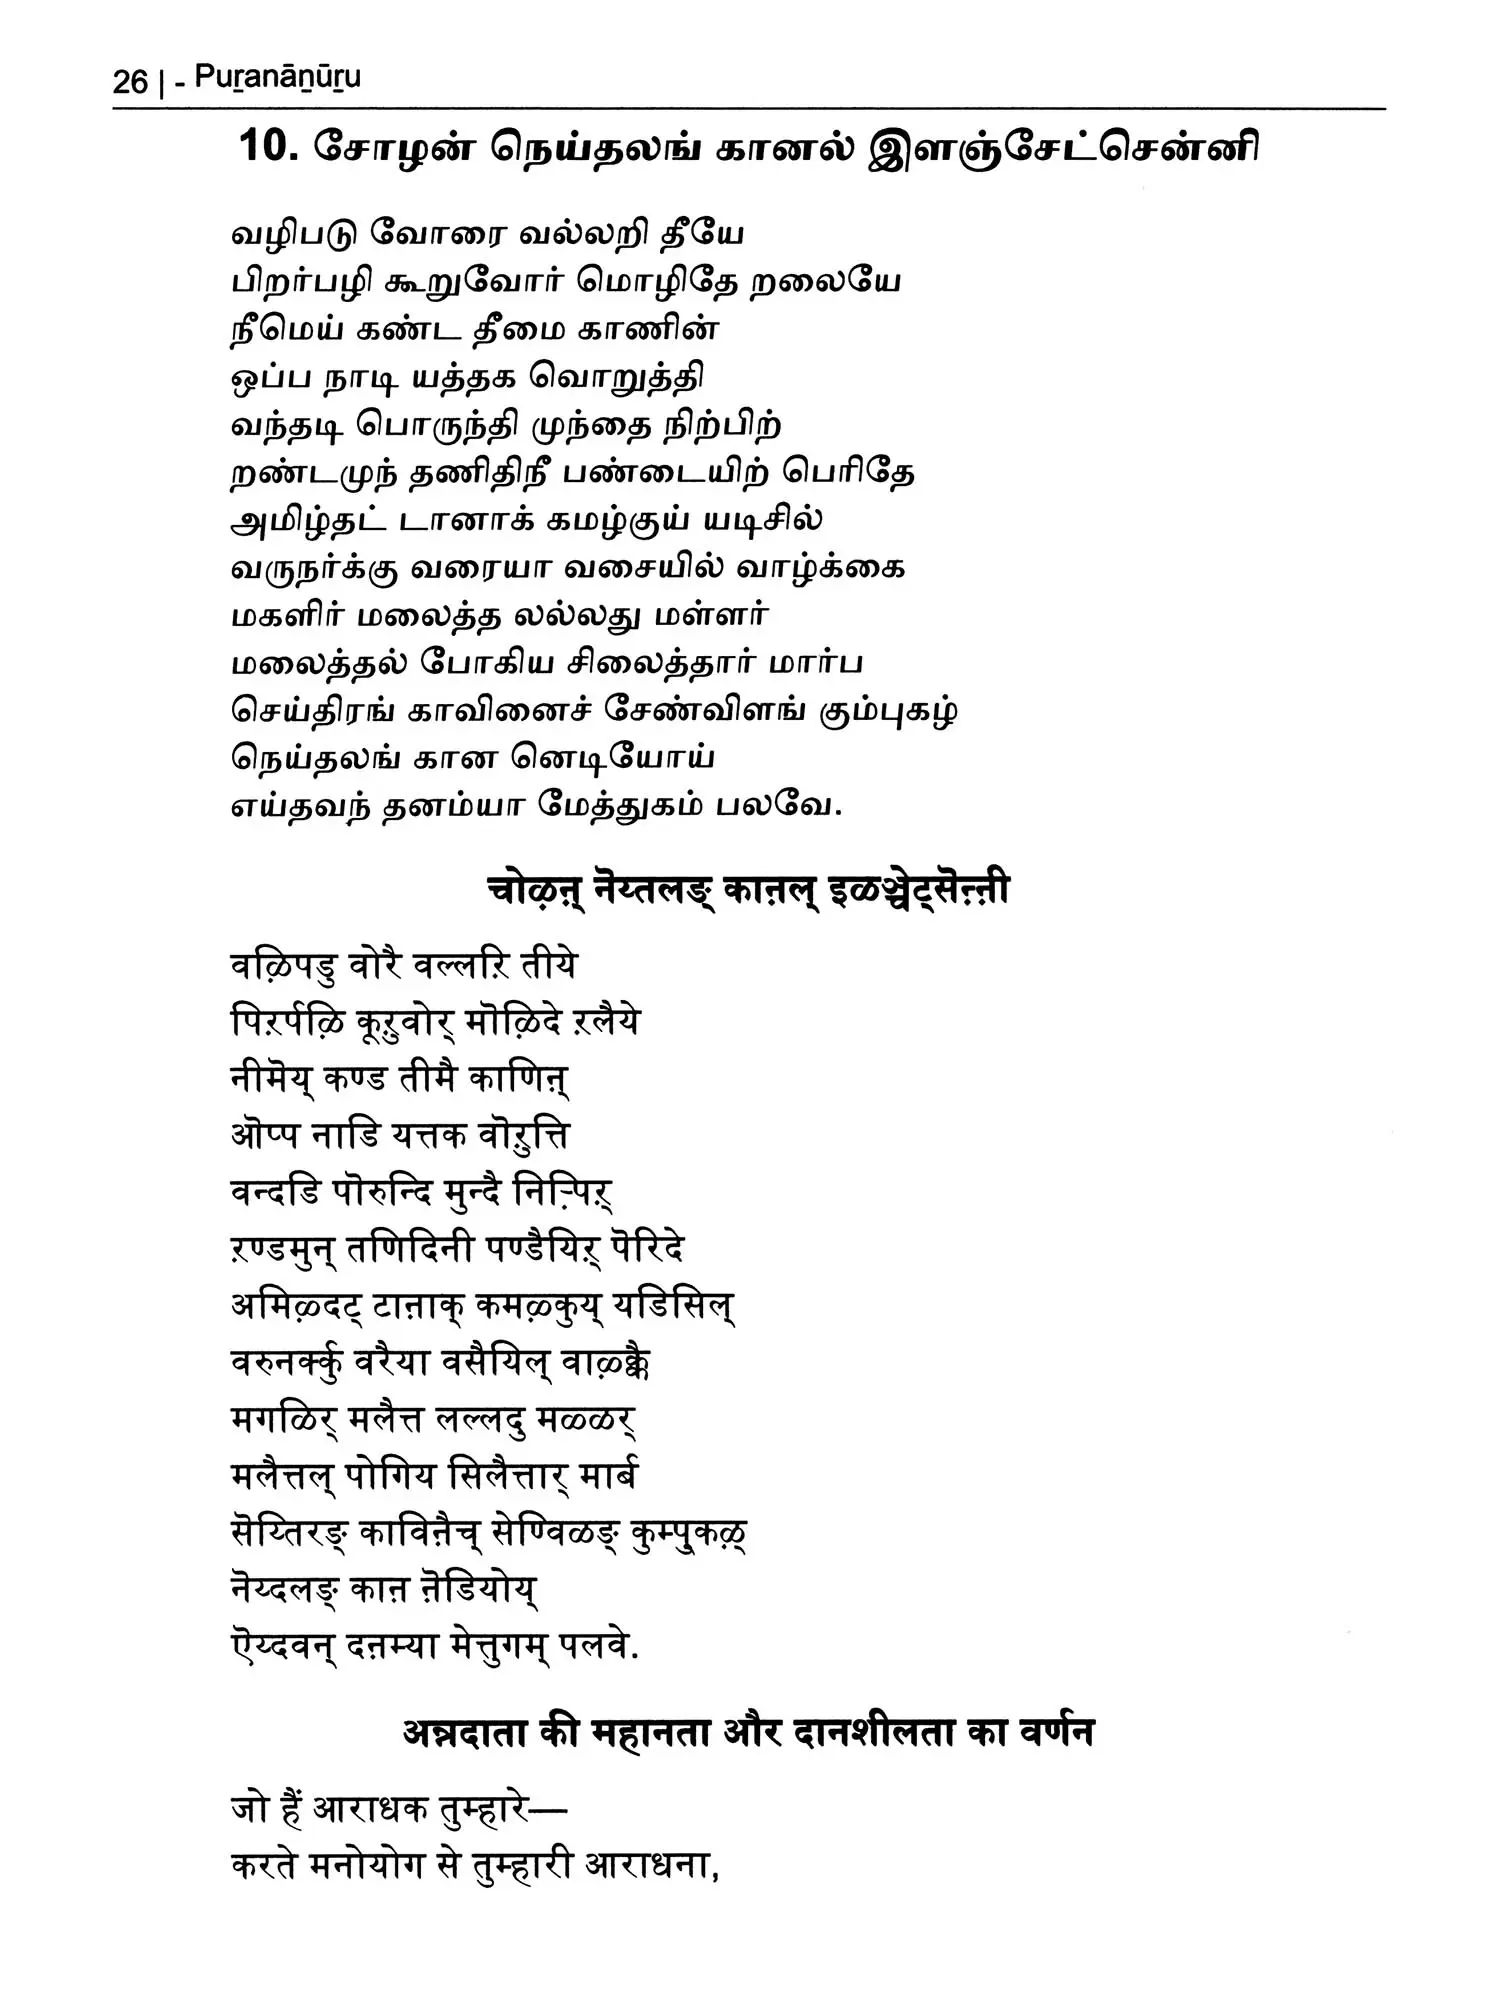 26 | - Puṟanāṉūṟu
10. சோழன் நெய்தலங் கானல் இளஞ்சேட்சென்னி
வழிபடு வோரை வல்லறி தீயே
பிறர்பழி கூறுவோர் மொழிதே றலையே
நீமெய் கண்ட தீமை காணின்
ஒப்ப நாடி யத்தக வொறுத்தி
வந்தடி பொருந்தி முந்தை நிற்பிற்
றண்டமுந் தணிதிநீ பண்டையிற் பெரிதே
அமிழ்தட் டானாக் கமழ்குய் யடிசில்
வருநர்க்கு வரையா வசையில் வாழ்க்கை
மகளிர் மலைத்த லல்லது மள்ளர்
மலைத்தல் போகிய சிலைத்தார் மார்ப
செய்திரங் காவினைச் சேண்விளங் கும்புகழ்
நெய்தலங் கான னெடியோய்
எய்தவந் தனம்யா மேத்துகம் பலவே.
चोऴऩ् नॆय्तलङ् काऩल् इळञ्चेट्सॆऩ्ऩी
वऴिपडु वोरै वल्लऱि तीये
पिऱर्पऴि कूऱुवोर् मॊऴिदे ऱलैये
नीमॆय् कण्ड तीमै काणिऩ्
ऒप्प नाडि यत्तक वॊऱुत्ति
वन्दडि पॊरुन्दि मुन्दै निऱ्पिऱ्
ऱण्डमुन् तणिदिनी पण्डैयिऱ् पॆरिदे
अमिऴ्दट् टाऩाक् कमऴ्कुय् यडिसिल्
वरुनर्क्कु वरैया वसैयिल् वाऴ्क्कै
मगळिर् मलैत्त लल्लदु मळ्ळर्
मलैत्तल् पोगिय सिलैत्तार् मार्ब
सॆय्तिरङ् काविऩैच् सेण्विळङ् कुम्पुकऴ्
नॆय्दलङ् काऩ ऩॆडियोय्
ऎय्दवन् दऩम्या मेत्तुगम् पलवे.
अन्नदाता की महानता और दानशीलता का वर्णन
जो हैं आराधक तुम्हारे—
करते मनोयोग से तुम्हारी आराधना,